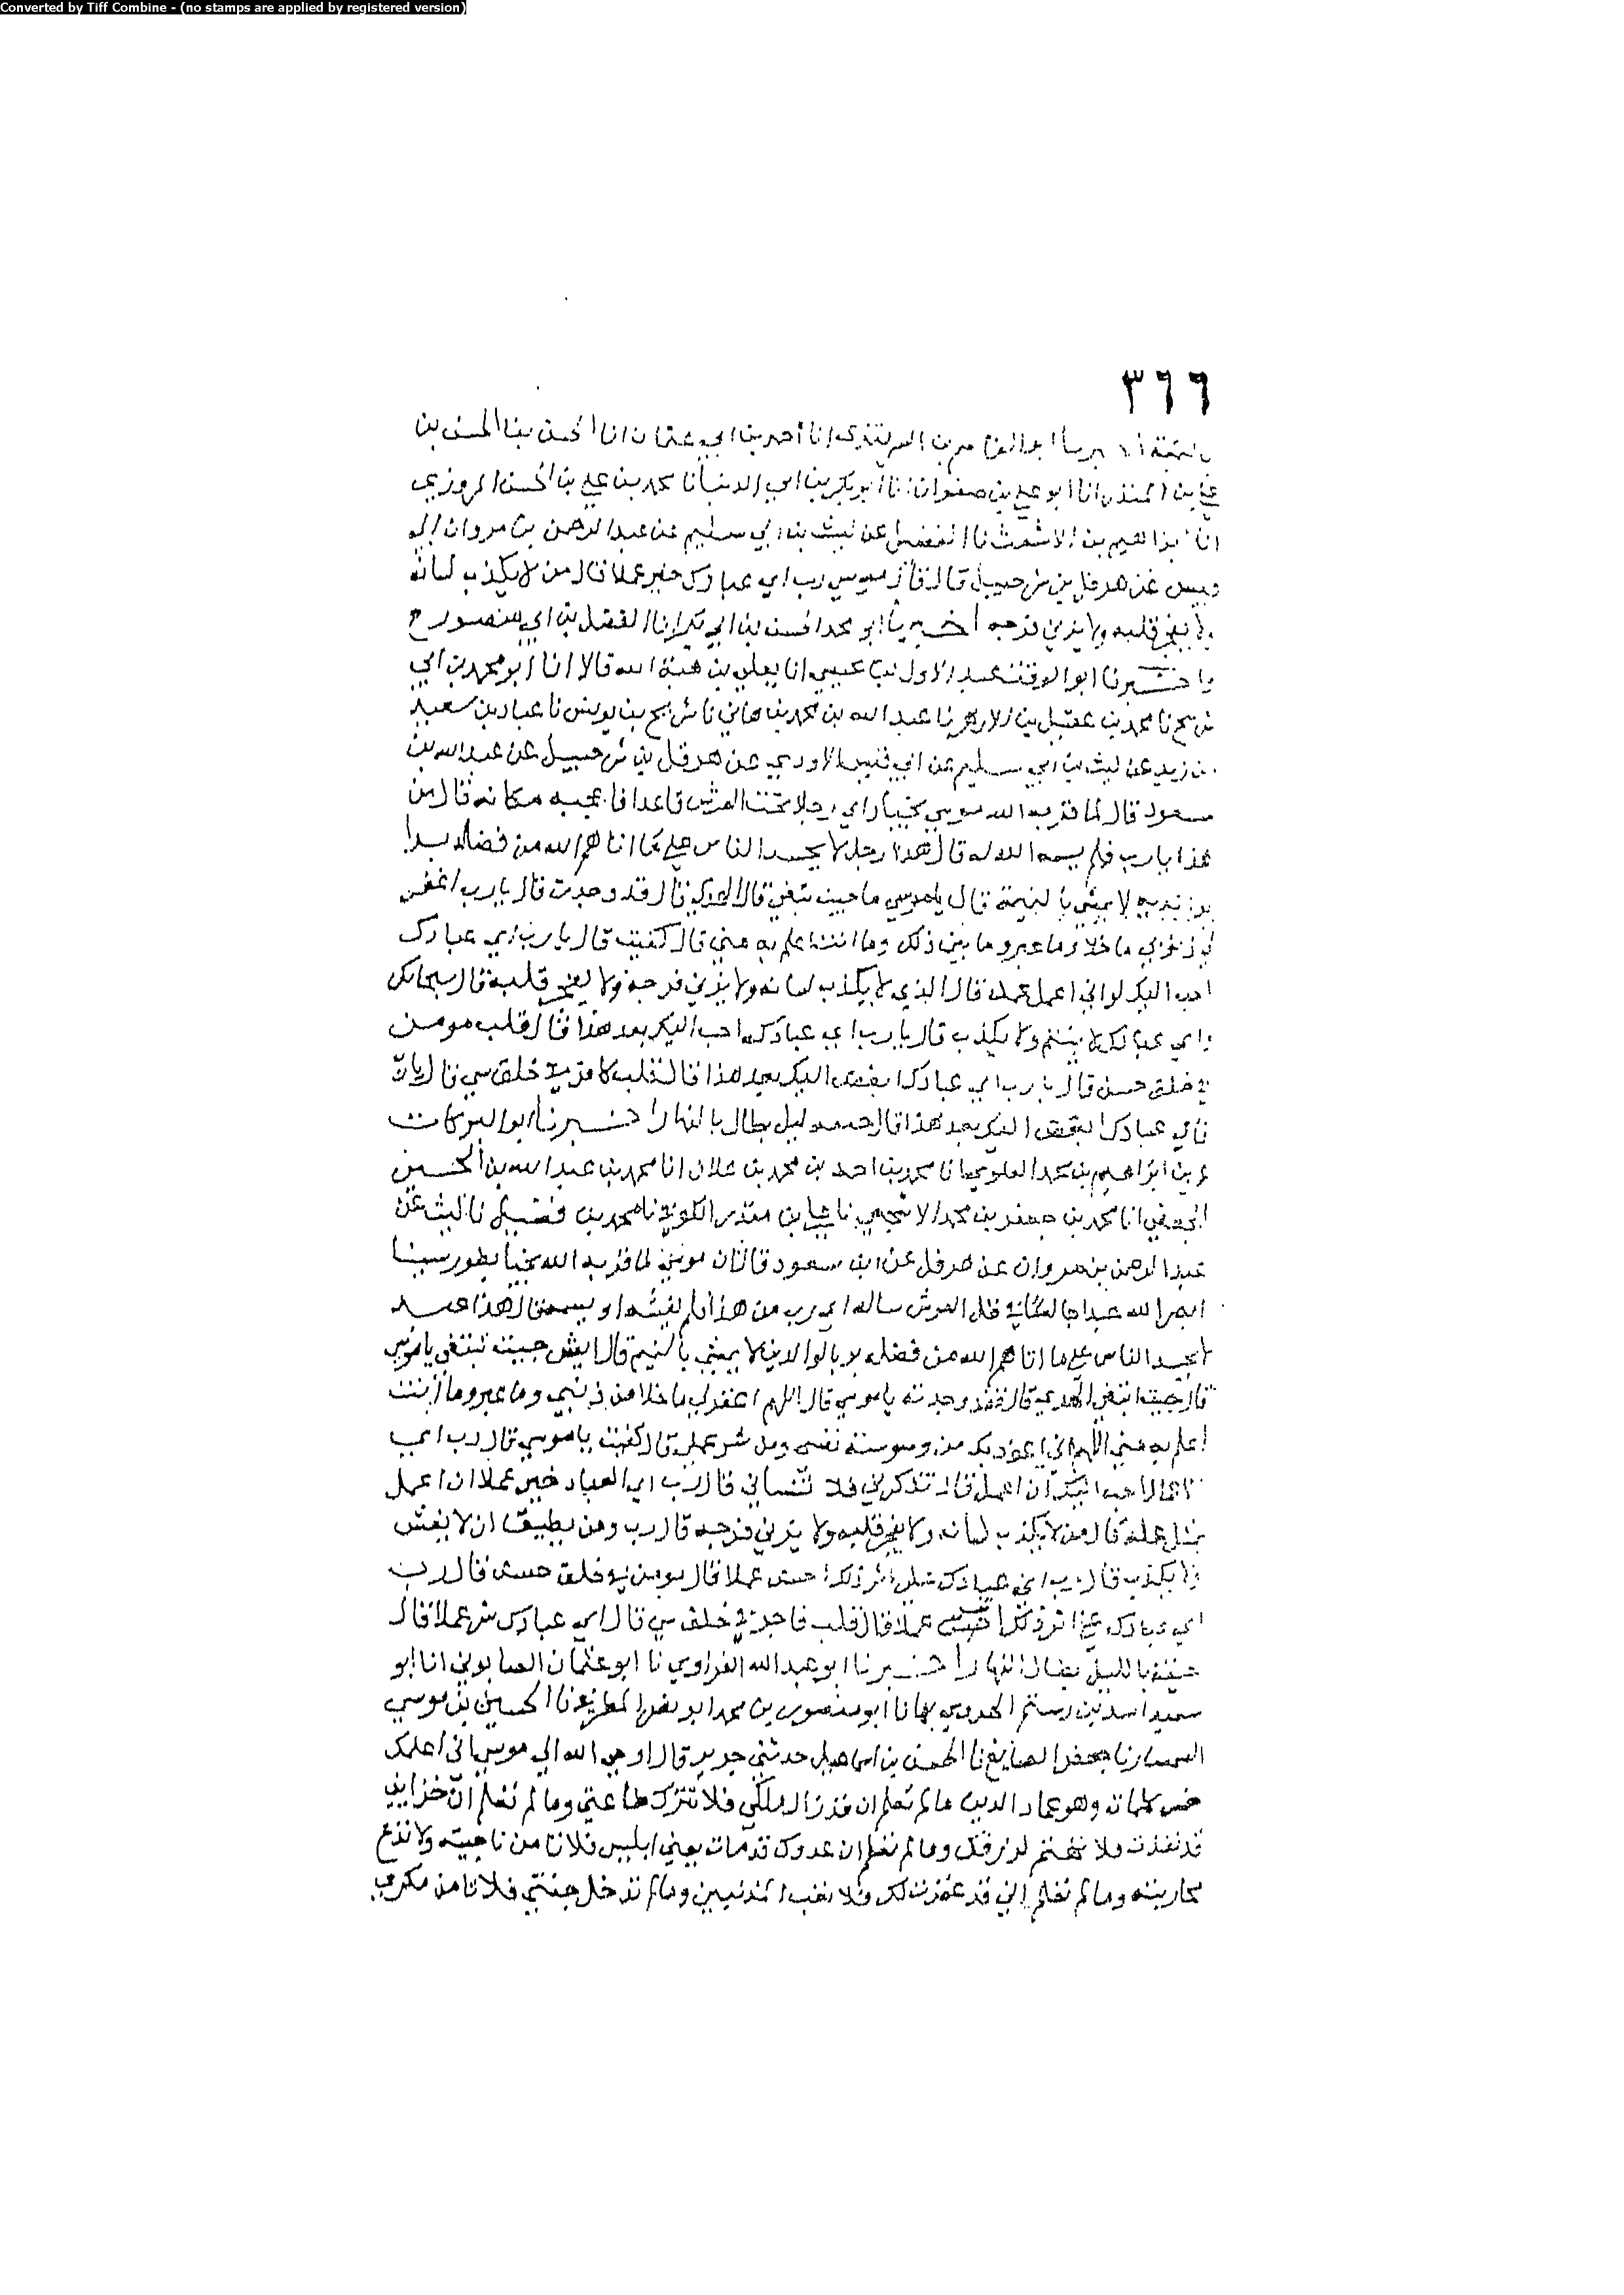 Converted by Tiff Combine - (no stamps are applied by registered version)
٣٦٦
ابو القاسم بن السمرقندي انا أحمد بن ابي عثمان انا الحسن بن الحسن بن
علي بن المنذر انا ابو علي بن صفوان نا ابو بكر بن ابي الدنيا نا محمد بن علي بن الحسن المروزي
انا ابن الاشعث نا الفضيل عن ليث بن ابي سليم عن عبد الرحمن بن مروان ابي
قيس عن هرقل بن شرحبيل قال قال موسى رب اي عبادك خير عملا قال من لا يكذب لسانه
ولا يفجر قلبه ولا يزني فرجه أخبرنا ابو محمد الحسن بن ابي بكر انا الفضل بن ابي منصور ح
واخبرنا ابو الوقت عبد الاول بن عيسى انا يعلى بن هبة الله قالا انا ابو محمد بن ابي
شريح نا محمد بن عقيل بن الازهر نا عبد الله بن محمد بن هاني نا شريح بن يونس نا عباد بن سعيد
بن زيد عن ليث بن ابي سليم عن ابي قيس الاودي عن هرقل بن شرحبيل عن عبد الله بن
مسعود قال لما قرب الله موسى نجيا راى رجلا تحت العرش قاعدا فاعجبه مكانه قال من
هذا يا رب فلم يسمه الله له قال هذا رجل لا يحسد الناس على ما اتاهم الله من فضله برا
بوالديه لا يمشي بالنميمة قال يا موسى ما جيت تبغي قال الهدى قال قد وجدت قال يا رب اغفر
لي ذنوبي ما خلا وما غبر وما بين ذلك وما انت اعلم به مني قال كفيت قال يا رب اي عبادك
احب اليك لو اني اعمل عمله قال الذي لا يكذب لسانه ولا يزني فرجه ولا يفجر قلبه قال سبحانك
واي عبادك لا يشتم ولا يكذب قال يا رب اي عبادك احب اليك بعد هذا قال قلب مومن
في خلق حسن قال يا رب اي عبادك ابغض اليك بعد هذا قال قلب كافر في خلق سي قال يا رب
فاي عبادك ابغض اليك بعد هذا قال جيفة ليل بطال بالنهار اخبرنا ابو البركات
عمر بن ابراهيم بن محمد العلوي انا محمد بن احمد بن محمد بن علان انا محمد بن عبد الله بن الحسين
الجعفي انا محمد بن جعفر بن محمد الاشجعي نا علي بن منذر الكوفي نا محمد بن فضيل نا ليث عن
عبد الرحمن بن مروان عن هرقل عن ابن مسعود قال ان موسى لما قربه الله نجيا بطور سينا
ابصر الله عبدا جالسا في ظل العرش ساله اي رب من هذا فلم يسمه قال هذا عبد
لا يحسد الناس على ما اتاهم الله من فضله بر بالوالدين لا يمشي بالنميم قال ايش جيت تبتغي يا موسى
قال جيت ابتغي الهدى قال فقد وجدته يا موسى قال اللهم اغفر لي ما خلا من ذنبي وما غبر وما انت
اعلم به مني اللهم اني اعوذ بك من وسوسة نفسي ومن شر عملي قال كفيت يا موسى قال رب اي
الاعمال احب اليك ان اعمل قال تذكرني فلا تنساني قال رب اي العباد خير عملا ان اعمل
بمثل عمله قال من لا يكذب لسانه ولا يفجر قلبه ولا يزني فرجه قال رب ومن يطيق ان لا يغش
ولا يكذب قال رب اي عبادك على اثر ذلك احسن عملا قال مومن في خلق حسن قال رب
اي عبادك على اثر ذلك عملا قال قلب فاجر في خلق سي قال اي عبادك شر عملا قال
جيفة بالليل بطال النهار اخبرنا ابو عبد الله الفراوي نا ابو عثمان الصابوني انا ابو
سعيد اسد بن رستم الهروي بها نا ابو منصور بن محمد ابو نصر المطرفي نا الحسين بن موسى
السمسار نا جعفر الصايغ نا الحسن بن اسماعيل حدثني جرير قال اوحى الله الى موسى اني اعلمك
خمس كلمات وهو عماد الدين ما لم تعلم ان قد زال ملكي فلا تترك طاعتي وما لم تعلم ان خزايني
قد نفدت ولا تهتم لرزقك وما لم تعلم ان عدوك قد مات يعني ابليس فلا تامن ناحيته ولا تدع
محاربته وما لم تعلم اني قد غفرت لك فلا تعب المذنبين وما لم تدخل جنتي فلا تامن مكري